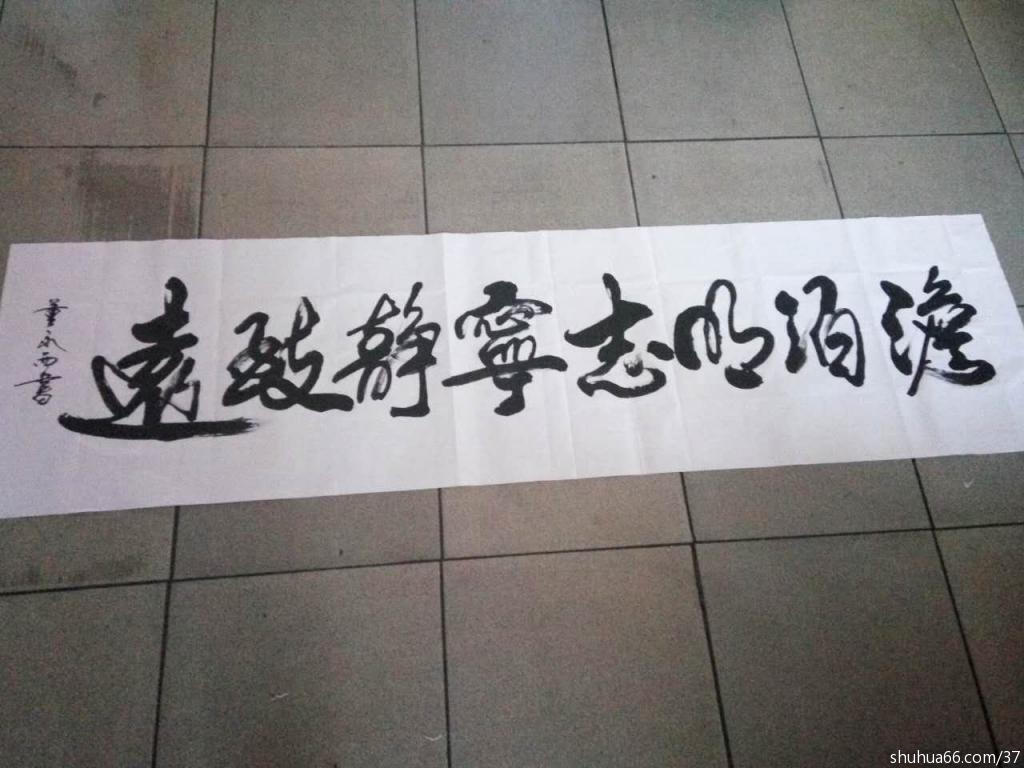 澹泊明志寧靜致遠
董永西書
shuhua66.com/37